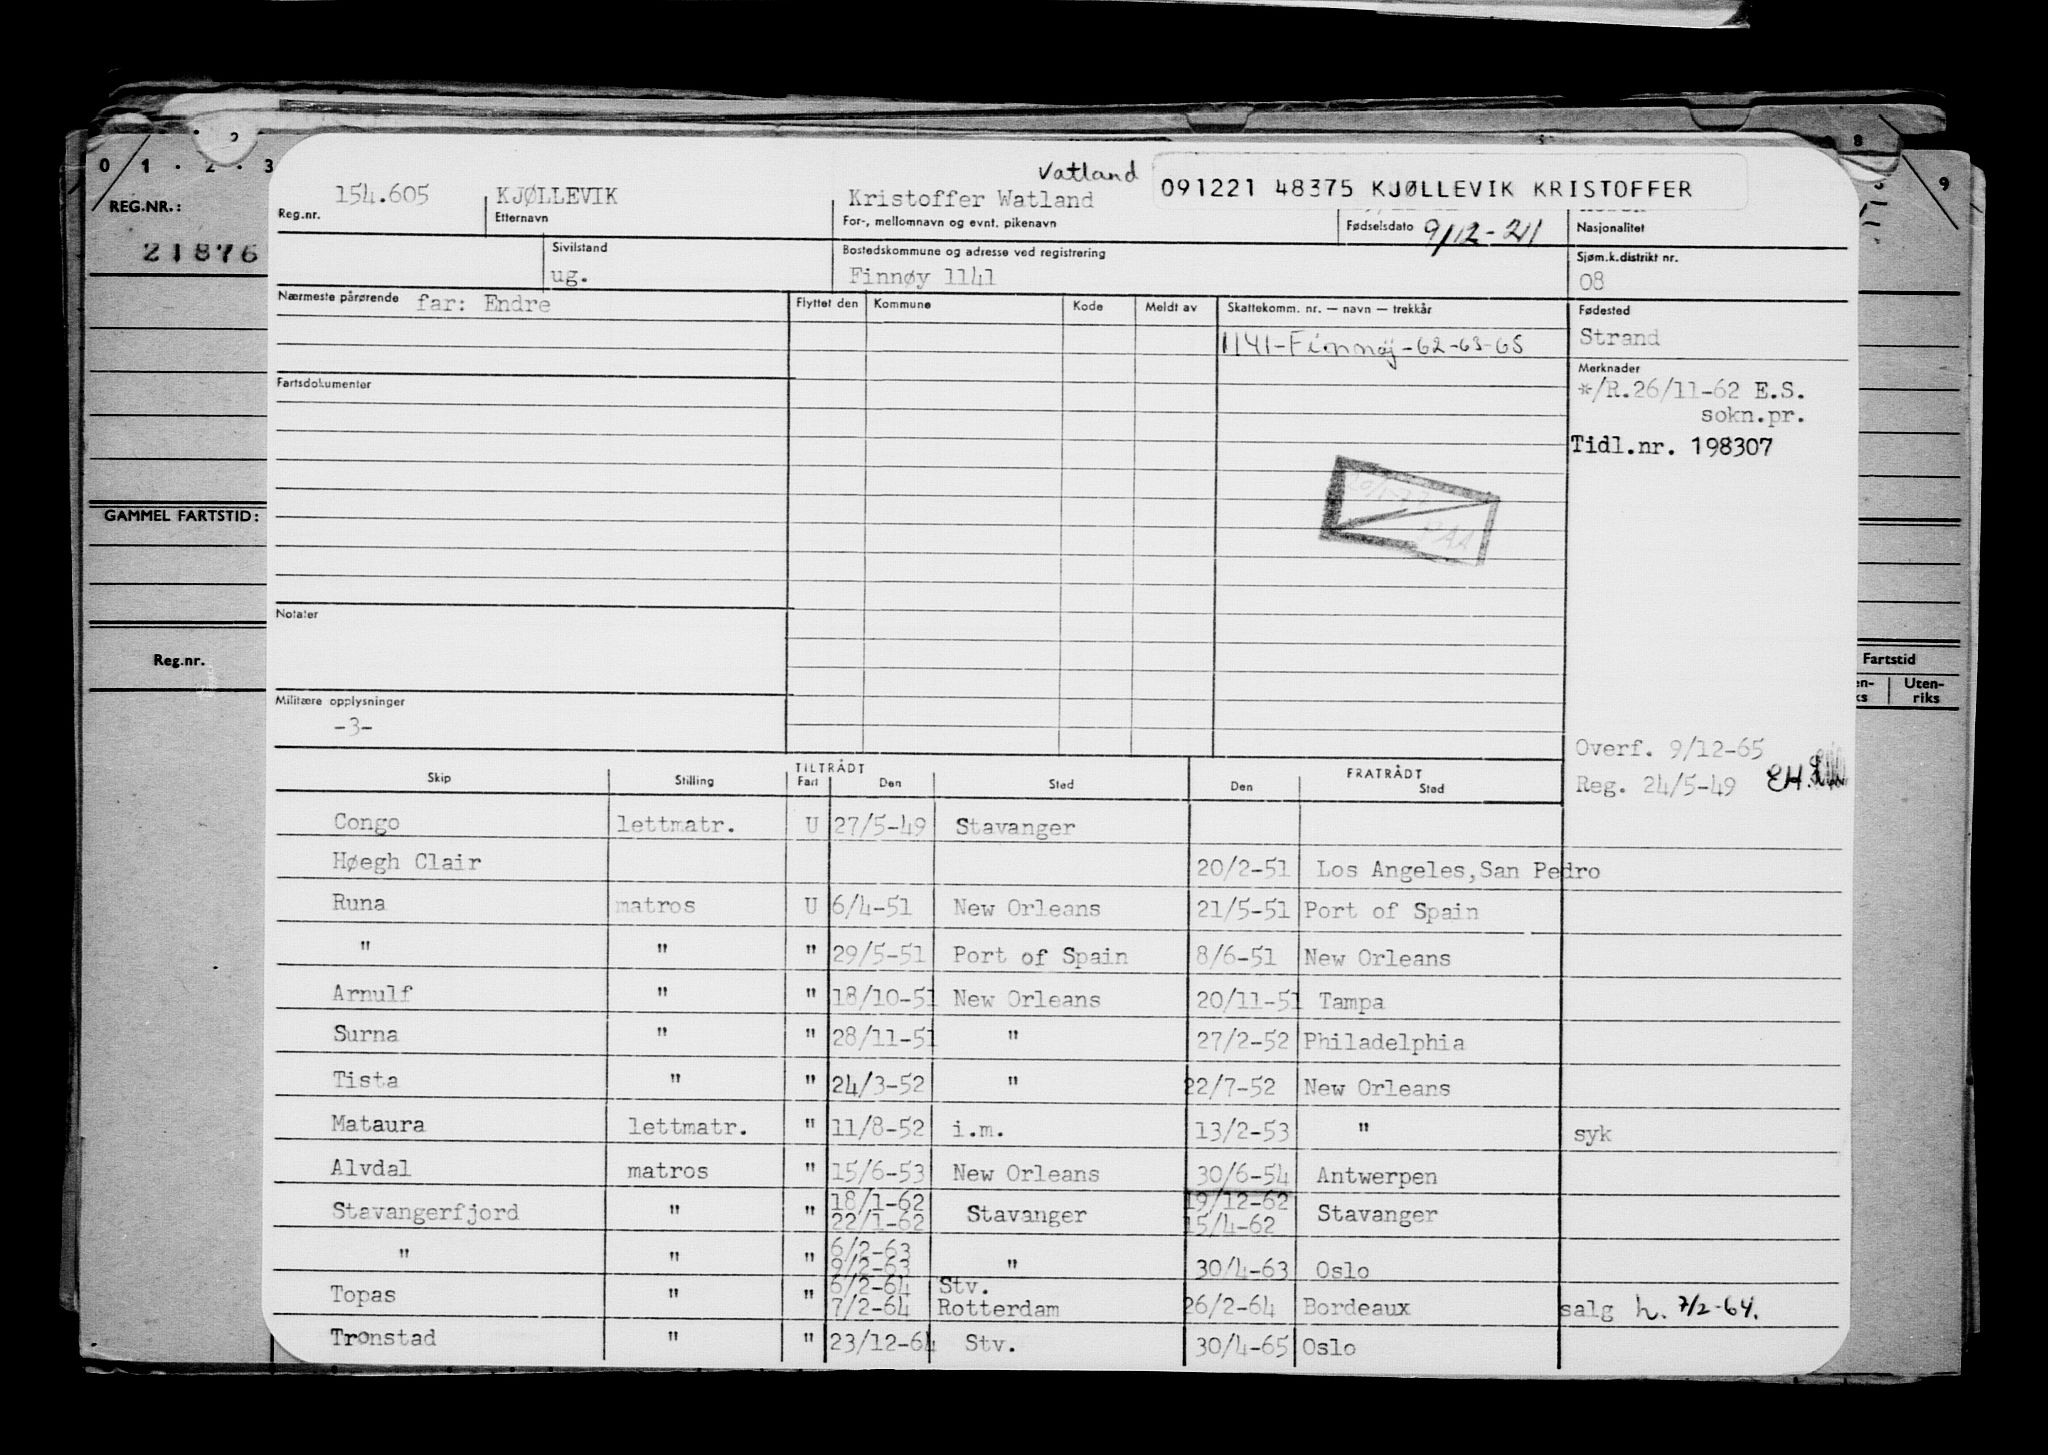 0 1 . 2 . 3
2
8
9
REG.NR.:
21876
GAMMEL FARTSTID:
Reg.nr.
Fartstid
Uten-
riks
154.605 KJØLLEVIK Kristoffer Watland Vatland 091221 48375 KJØLLEVIK KRISTOFFER
Reg.nr. Etternavn For-, mellomnavn og evnt. pikenavn Fødselsdato 9/12-21 Nasjonalitet
Sivilstand Bostedskommune og adresse ved registrering Sjøm.k.distrikt nr.
ug. Finnøy 1141 08
Nærmeste pårørende far: Endre Flyttet den Kommune Kode Meldt av Skattekomm. nr. — navn — trekkår Fødested
1141-Finnøy-62-63-65 Strand
Fartsdokumenter Merknader
*/R.26/11-62 E.S.
sokn.pr.
Tidl.nr. 198307
Notater
Militære opplysninger
-3-
Overf. 9/12-65
Reg. 24/5-49 EH.
TILTRÅDT FRATRÅDT
Skip Stilling Fart Den Sted Den Sted
Congo lettmatr. U 27/5-49 Stavanger
Høegh Clair 20/2-51 Los Angeles,San Pedro
Runa matros U 6/4-51 New Orleans 21/5-51 Port of Spain
" " " 29/5-51 Port of Spain 8/6-51 New Orleans
Arnulf " " 18/10-51 New Orleans 20/11-51 Tampa
Surna " " 28/11-51 " 27/2-52 Philadelphia
Tista " " 24/3-52 " 22/7-52 New Orleans
Mataura lettmatr. " 11/8-52 i.m. 13/2-53 " syk
Alvdal matros " 15/6-53 New Orleans 30/6-54 Antwerpen
18/1-62 19/12-62
Stavangerfjord " " 22/1-62 Stavanger 15/4-62 Stavanger
6/2-63
" " " 9/2-63 " 30/4-63 Oslo
6/2-64 Stv.
Topas " " 7/2-64 Rotterdam 26/2-64 Bordeaux salg h. 7/2-64.
Tronstad " " 23/12-64 Stv. 30/4-65 Oslo